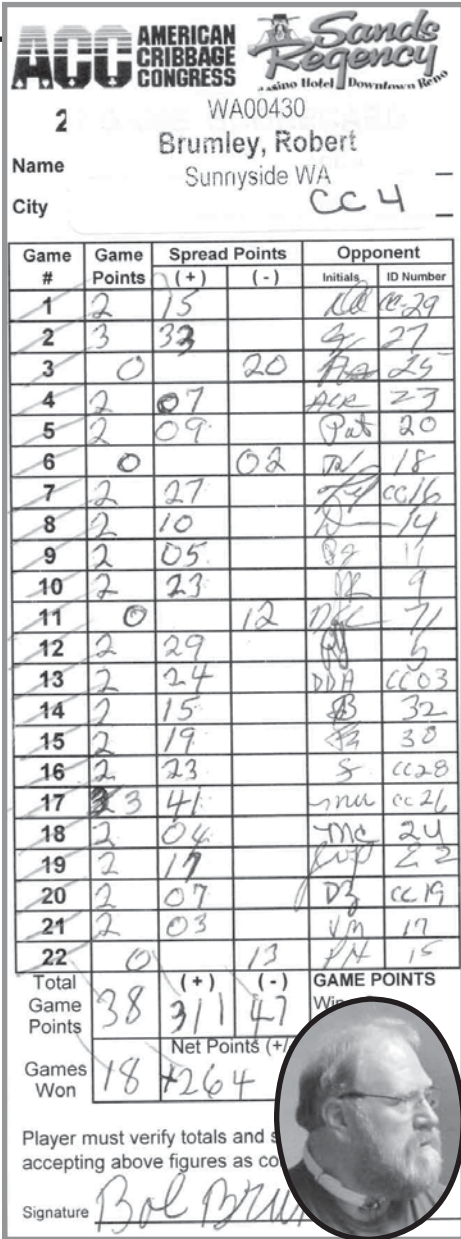 ACC AMERICAN CRIBBAGE CONGRESS
Sands Regency
Casino Hotel Downtown Reno
2
WA00430
Brumley, Robert
Name
Sunnyside WA
City CC 4
Game # Game Points Spread Points (+) (-) Opponent Initials ID Number
1 2 15 CC-29
2 3 33 27
3 0 20 25
4 2 07 ACR 23
5 2 09 Pat 20
6 0 02 18
7 2 27 CC16
8 2 10 14
9 2 05 11
10 2 23 9
11 0 12
12 2 29
13 2 24 DDA CC03
14 2 15 32
15 2 19 30
16 2 23 S CC28
17 3 3 41 CC26
18 2 04 MC 24
19 2 17 22
20 2 07 DZ CC19
21 2 03 17
22 0 13 15
Total Game Points 38 (+) 311 (-) 47 GAME POINTS
Win
Games Won 18 Net Points (+/ +264
Player must verify totals and s
accepting above figures as co
Signature Bob Bru